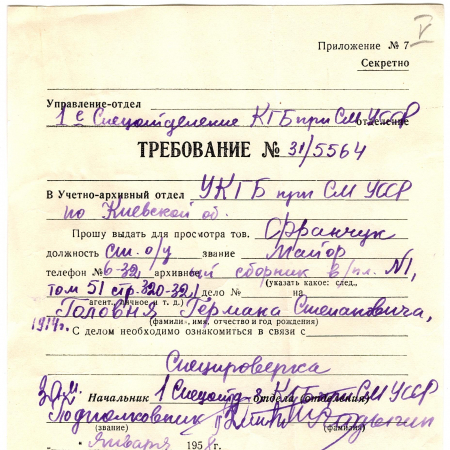 V
Приложение № 7
Секретно
Управление-отдел
1е Спецотделение КГБ при СМ УССР отделение
ТРЕБОВАНИЕ № 31/5564
В Учетно-архивный отдел УКГБ при СМ УССР
по Киевской об.
Прошу выдать для просмотра тов. Франчук
должность ст. о/у звание Майор
телефон № 6-32 архивный сборник в/пл. №1,
(указать какое: след.,
том 51 стр. 320-321 дело № на
агент. личное и т. д.)
Головня Германа Степановича,
(фамилия, имя, отчество и год рождения)
1914г. С делом необходимо ознакомиться в связи с
Спецпроверка
Зам. Начальник 1 Спецотд-я КГБ при СМ УССР
отдела (отделения)
Подполковник
(звание) (фамилия)
Января 1958 г.